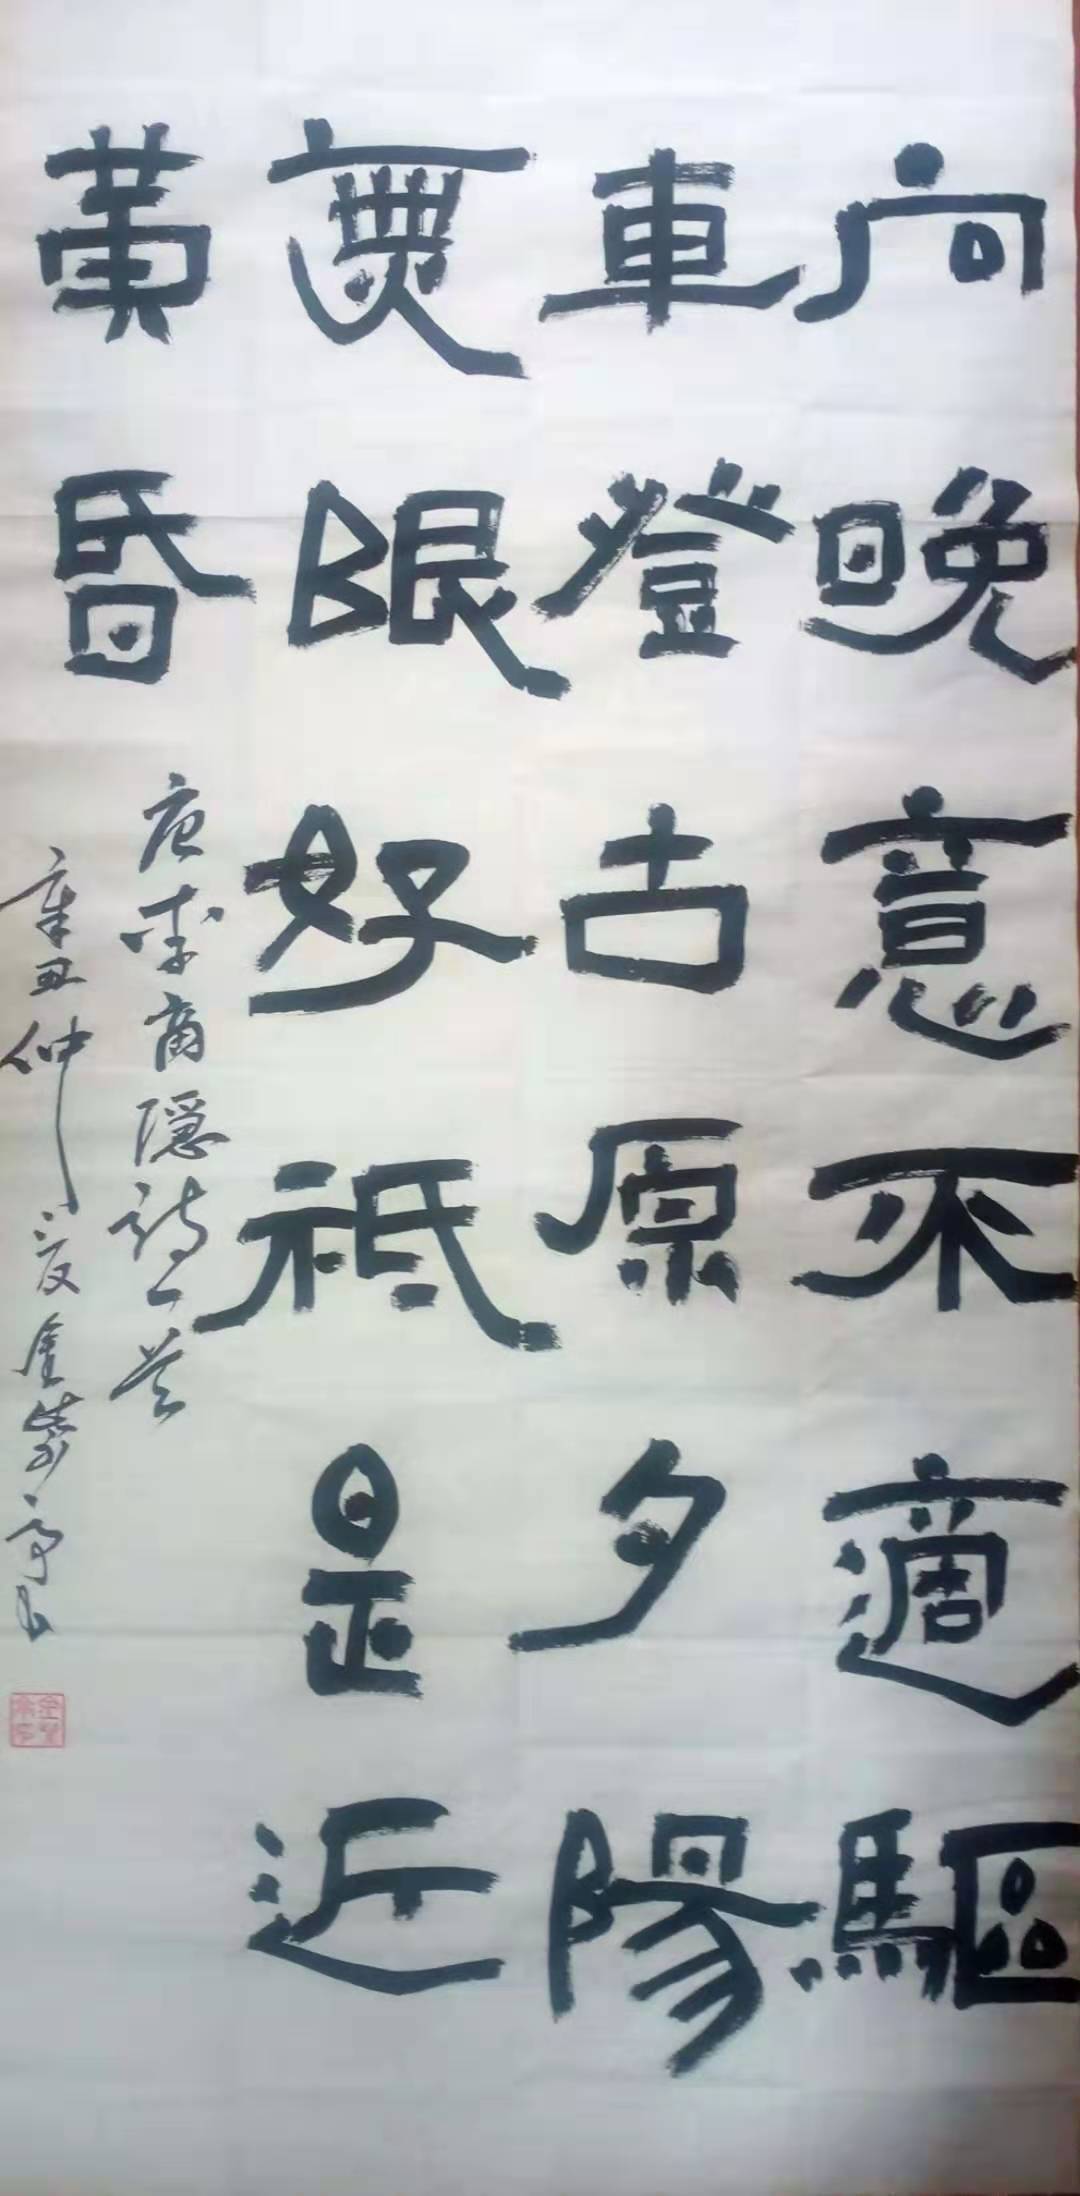 向晚意不適驅
車登古原夕陽
無限好祗是近
黃昏
唐李商隱詩一首
辛丑仲夏金紫亭书